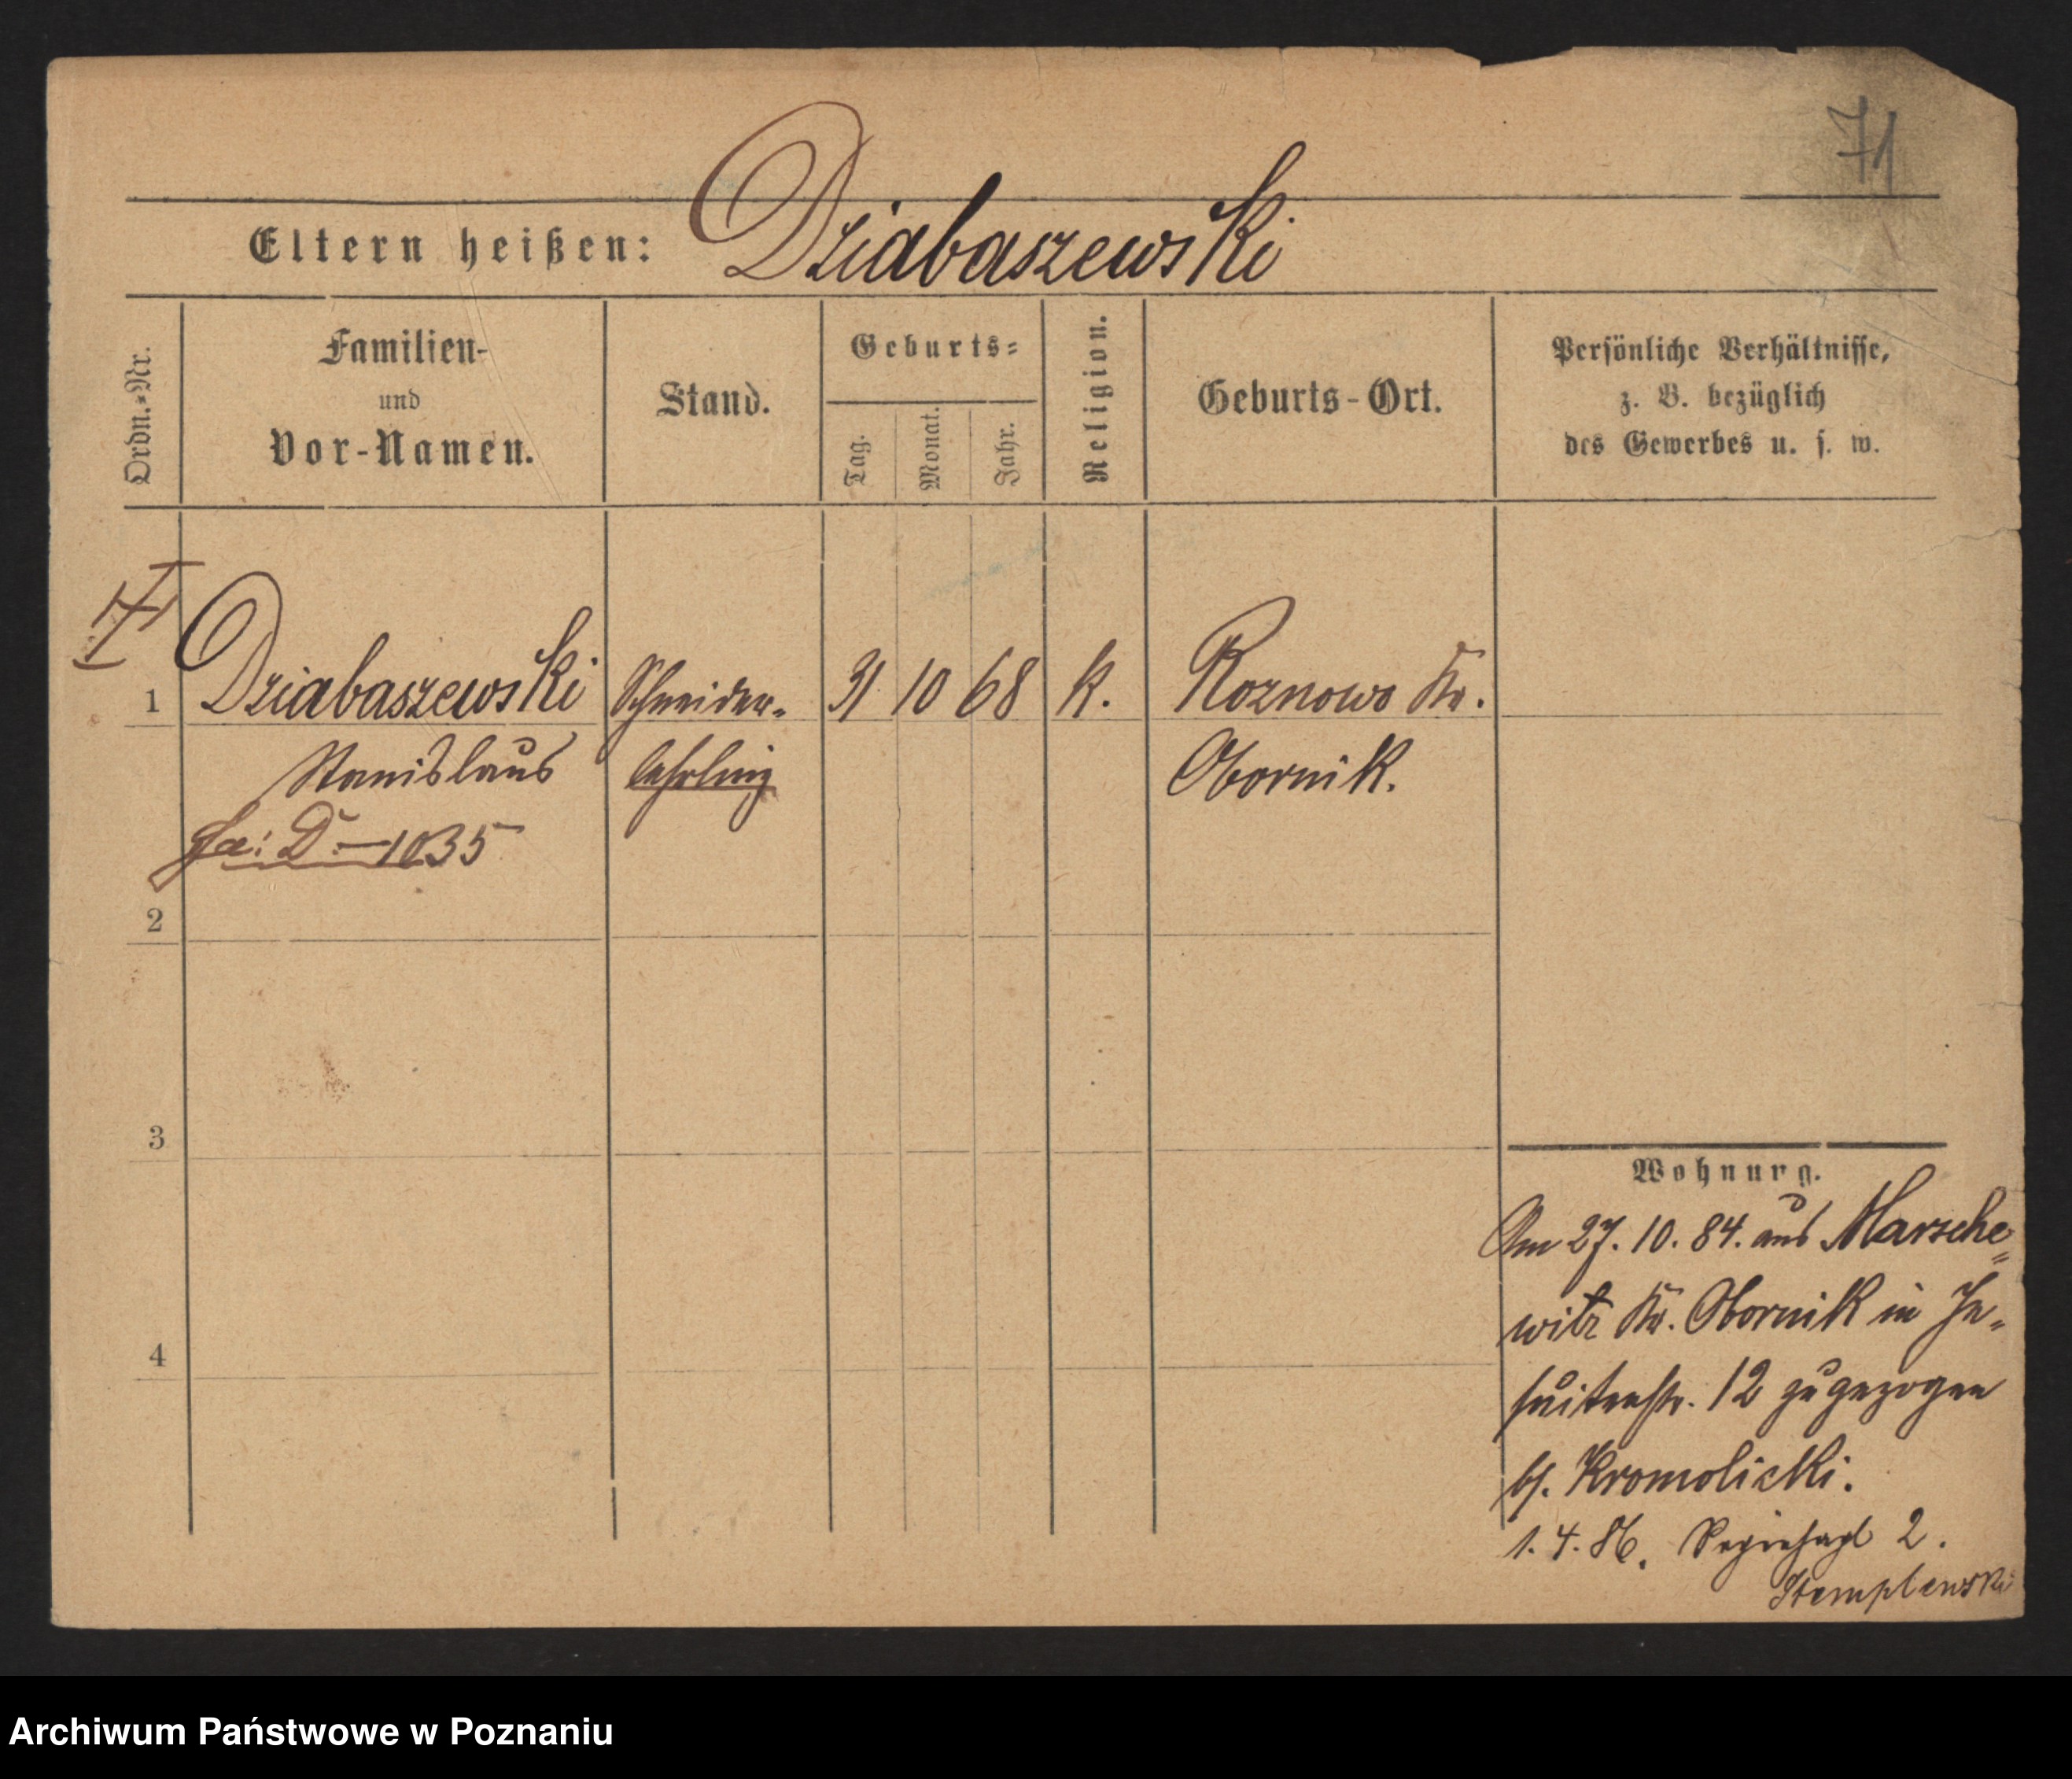 71
Eltern heißen: Dziabaszewski
Ordn.-Nr.
Familien-
und
Vor-Namen.
Stand.
Geburts-
Tag.
Monat.
Jahr.
Religion.
Geburts-Ort.
Persönliche Verhältnisse,
z. B. bezüglich
des Gewerbes u. s. w.
1 Dziabaszewski Schneider- 31 10 68 K. Roznowo Kr.
Stanislaus lehrling Obornik.
D.-1035
2
3
4
Wohnung.
Am 27. 10. 84. aus Marsche-
witz Kr. Obornik in Je-
suitenstr. 12 zugezogen
bf. Kromolicki.
1. 4. 86. 2.
Stemplewski
Archiwum Państwowe w Poznaniu